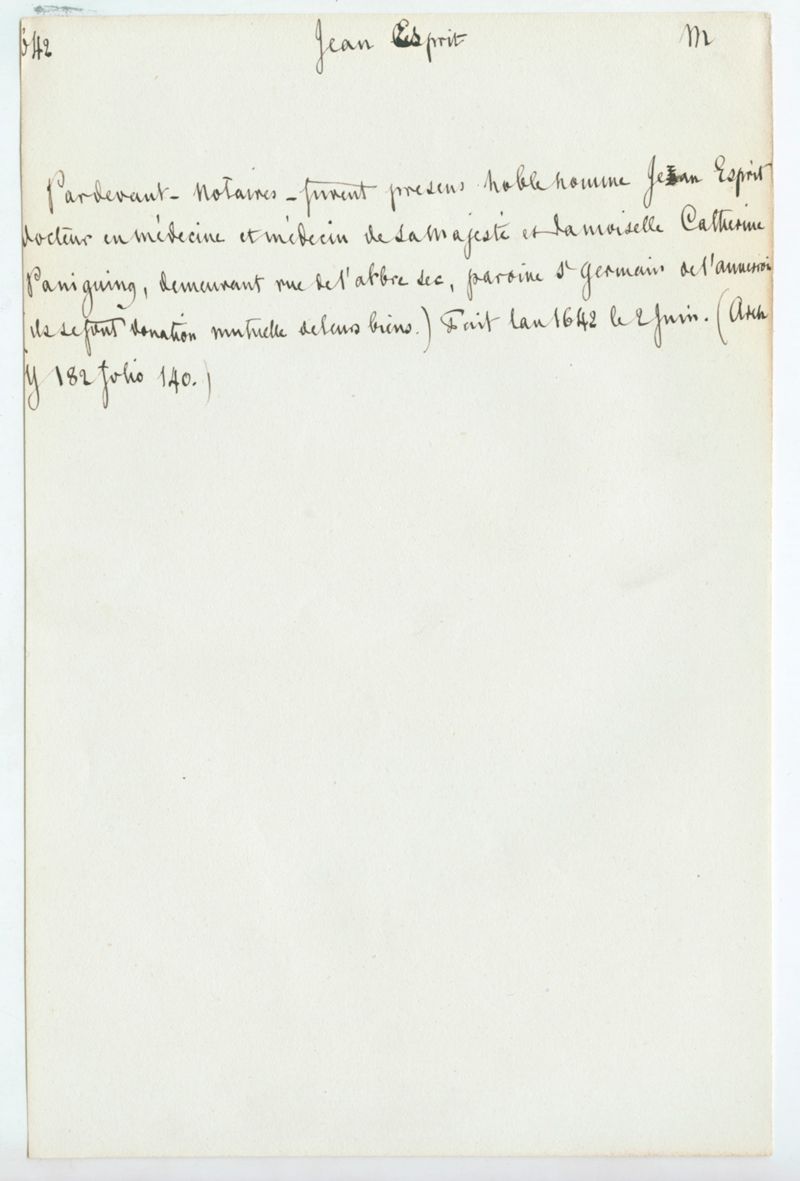 642 Jean Esprit M
Pardevant - Notaires - furent presens noble homme Jean Esprit
docteur en médecine et médecin de sa Majesté et damoiselle Catherine
demeurant rue de l'arbre sec, paroisse St Germain de l'auxerrois
(ils se font donation mutuelle de leurs biens.) Fait lan 1642 le 2 Juin. (Arch
Y 182 folio 140.)